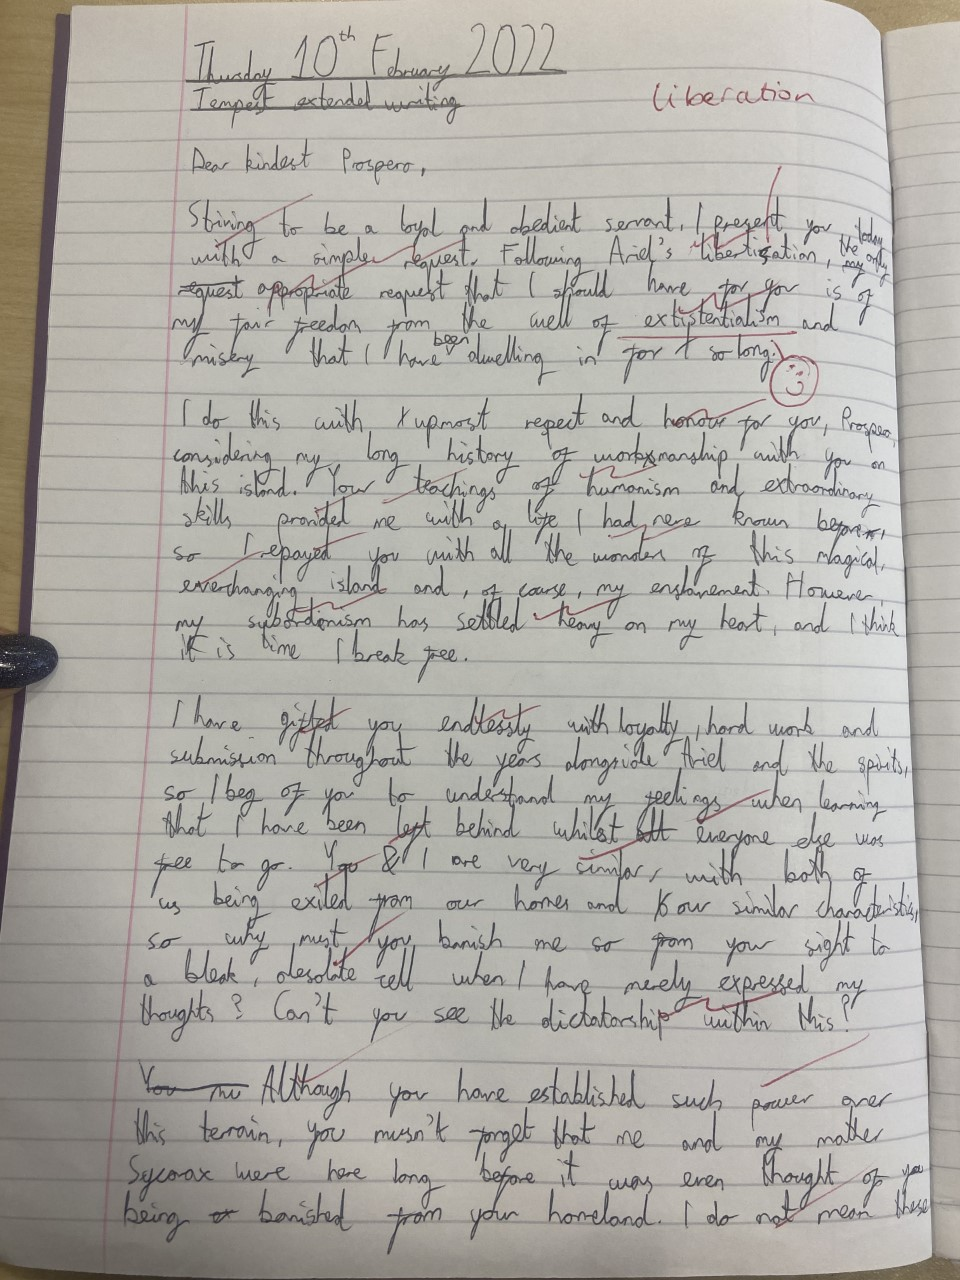 Thursday 10th February 2022
Tempest extended writing
Liberation
Dear kindest Prospero,
Striving to be a loyal and obedient servant, I present you today
with a simple request. Following Ariel's libertisation, the only
request appropriate request that I should have for you is of
my fair freedom from the well of extistentialism and
misery that I have been dwelling in for so long.
I do this with upmost repect and honour for you, Prospero,
considering my long history of workmanship with you on
this island. Your teachings of humanism and extraordinary
skills provided me with a life I had never known before,
so I repayed you with all the wonders of this magical,
everchanging island and, of course, my enslavement. However,
my subordonism has settled heavy on my heart, and I think
it is time I break free.
I have gifted you endlessly with loyalty, hard work and
submission throughout the years alongside Ariel and the spirits,
so I beg of you to understand my feelings when learning
that I have been left behind whilst all everyone else was
free to go. You & I are very similar, with both of
us being exiled from our homes and our similar characteristics,
so why must you banish me so from your sight to
a bleak, desolate cell when I have merely expressed my
thoughts? Can't you see the dictatorship within this?
You Although you have established such power over
this terrain, you musn't forget that me and my mother
Sycorax were here long before it was even thought of you
being banished from your homeland. I do not mean these